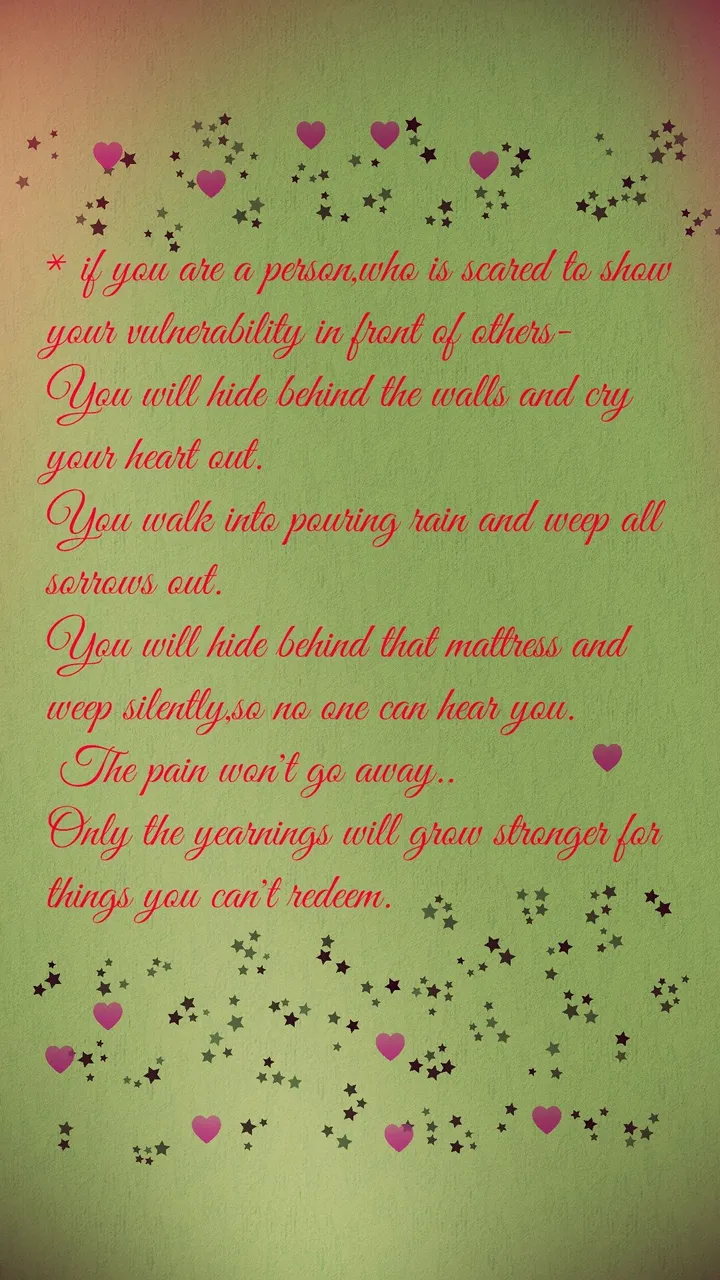 * if you are a person,who is scared to show
your vulnerability in front of others-
You will hide behind the walls and cry
your heart out.
You walk into pouring rain and weep all
sorrows out.
You will hide behind that mattress and
weep silently,so no one can hear you.
The pain won't go away..
Only the yearnings will grow stronger for
things you can't redeem.